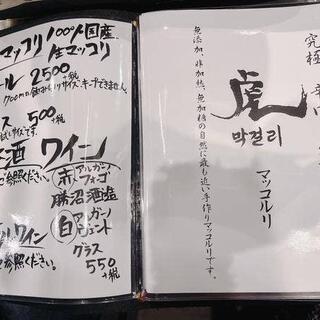 マッコリ 100%国産
生マッコリ
ール 2500+税
ス 500+税
酒 ワイン
ご参照ください。
赤 アルガーノ
フォゴ
勝沼酒造
白 アルガーノ
ヴェント
グラス
550
+税
ワイン
ご参照ください。
究極
虎
막걸리
マッコルリ
無添加、非加熱、無加糖の自然に最も近い手作りマッコルリです。